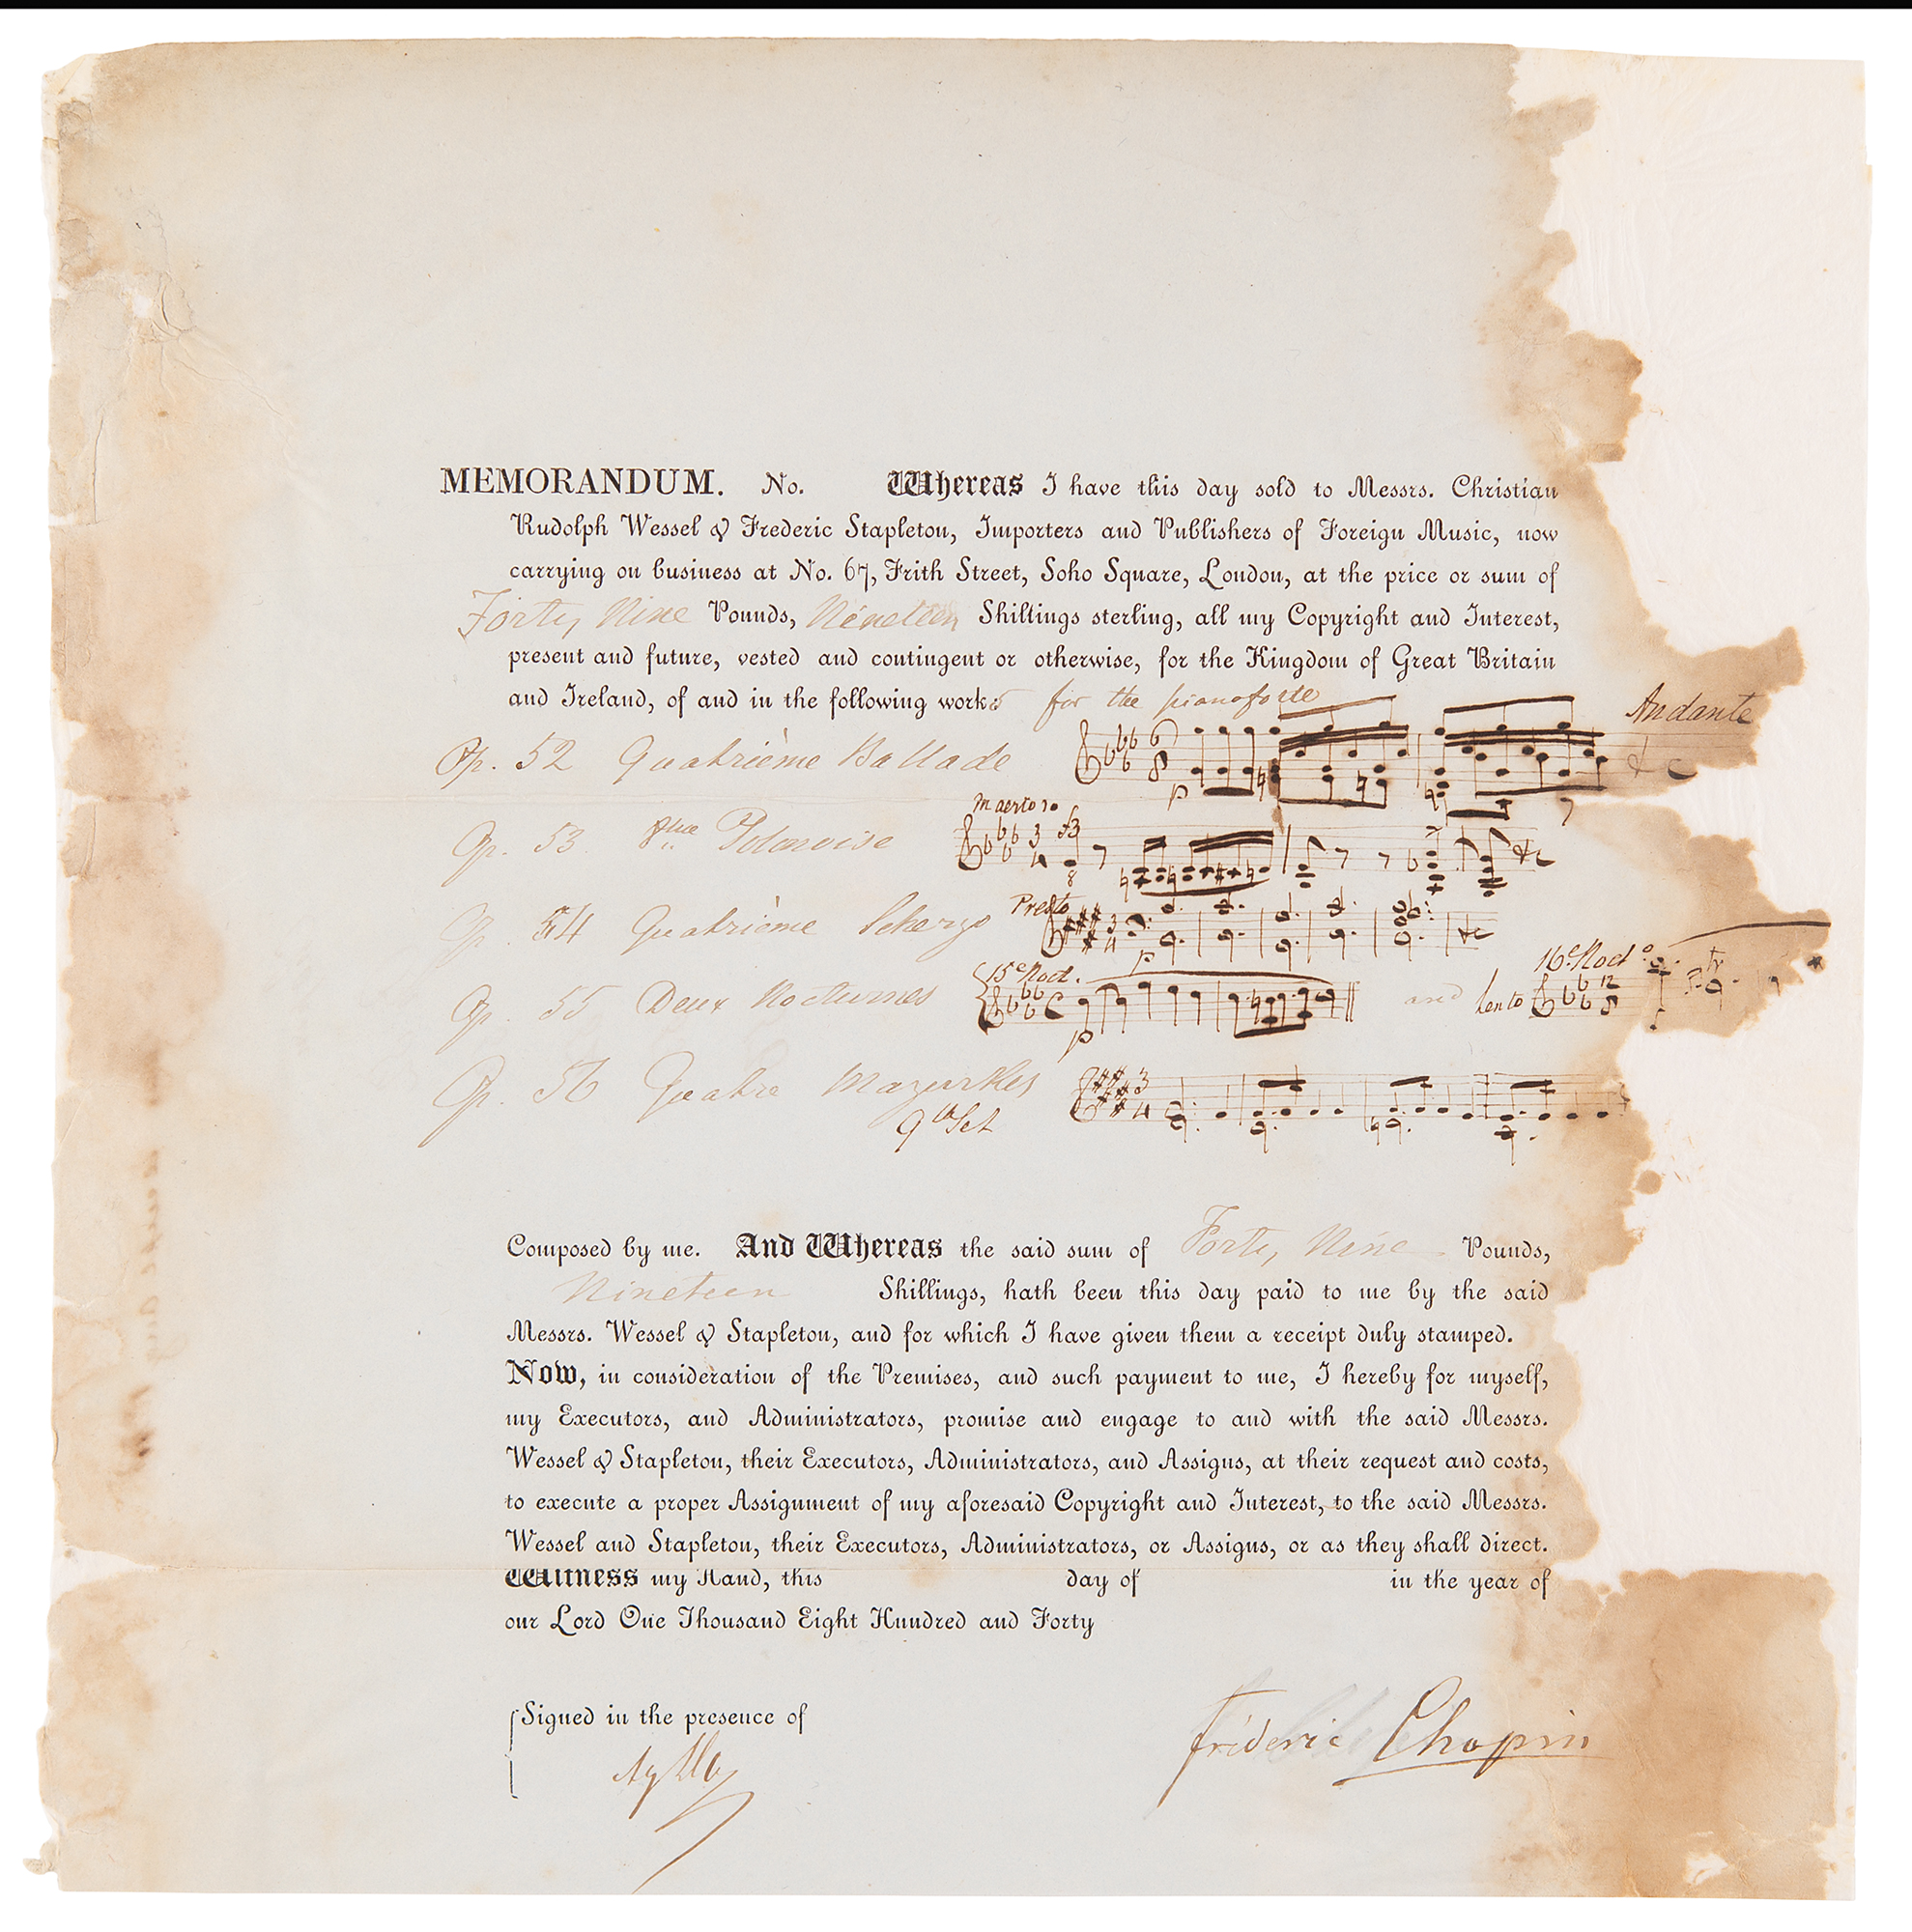 MEMORANDUM. No. Whereas I have this day sold to Messrs. Christian
Rudolph Wessel & Frederic Stapleton, Importers and Publishers of Foreign Music, now
carrying on business at No. 67, Frith Street, Soho Square, London, at the price or sum of
Forty Nine Pounds, Nineteen Shillings sterling, all my Copyright and Interest,
present and future, vested and contingent or otherwise, for the Kingdom of Great Britain
and Ireland, of and in the following works for the pianoforte
Andante
Op. 52 Quatrième Ballade
Maestoso
Op. 53 Polonoise
Op. 54 Quatrième Scherzo Presto
15e Noct. 16e Noct
Op. 55 Deux Nocturnes and Lento
Op. 56 Quatre Mazurkes
9th Set
Composed by me. And Whereas the said sum of Forty Nine Pounds,
Nineteen Shillings, hath been this day paid to me by the said
Messrs. Wessel & Stapleton, and for which I have given them a receipt duly stamped.
Now, in consideration of the Premises, and such payment to me, I hereby for myself,
my Executors, and Administrators, promise and engage to and with the said Messrs.
Wessel & Stapleton, their Executors, Administrators, and Assigns, at their request and costs,
to execute a proper Assignment of my aforesaid Copyright and Interest, to the said Messrs.
Wessel and Stapleton, their Executors, Administrators, or Assigns, or as they shall direct.
Witness my Hand, this day of in the year of
our Lord One Thousand Eight Hundred and Forty
Signed in the presence of
Fréderic Chopin